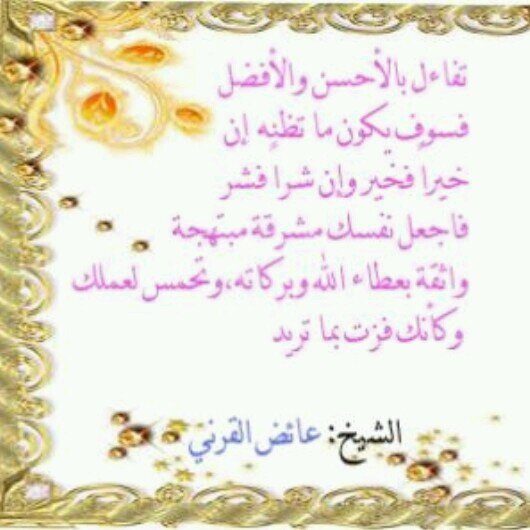 تفاءل بالأحسن والأفضل
فسوف يكون ما تظنه إن
خيرا فخير وإن شرا فشر
فاجعل نفسك مشرقة مبتهجة
واثقة بعطاء الله وبركاته، وتحمس لعملك
وكأنك فزت بما تريد
الشيخ: عائض القرني